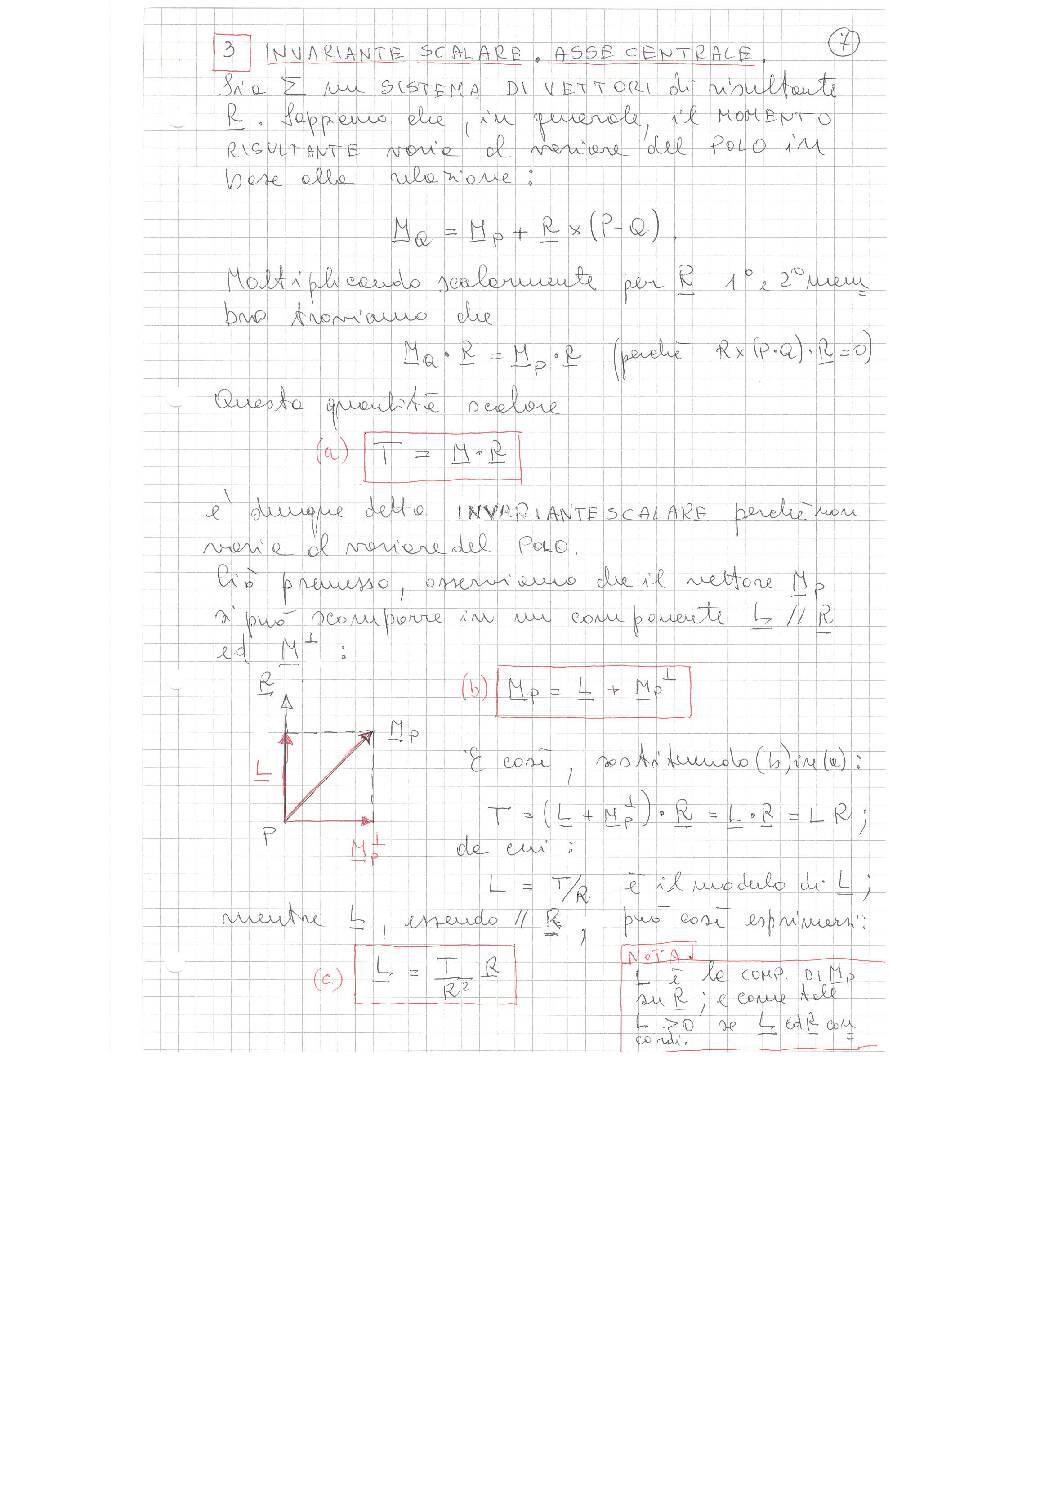 7
3 INVARIANTE SCALARE. ASSE CENTRALE.
Sia Σ un SISTEMA DI VETTORI di risultante
R. Sappiamo che, in generale, il MOMENTO
RISULTANTE varia al variare del POLO in
base alla relazione:
M_Q = M_P + R × (P-Q).
Moltiplicando scalarmente per R 1° e 2° mem
bro troviamo che
M_Q · R = M_P · R (perchè R×(P-Q)·R=0)
Questa quantità scalare
(a) T = M · R
è dunque detta INVARIANTE SCALARE perchè non
varia al variare del POLO.
Ciò premesso, osserviamo che il vettore M_P
si può scomporre in un componente L // R
ed M^⊥ :
R
(b) M_P = L + M_P^⊥
M_P
E così, sostituendo (b) in (a):
L
T = (L + M_P^⊥) · R = L · R = L R;
P
M_P^⊥
da cui:
L = T/R è il modulo di L;
mentre L, essendo // R, può così esprimersi:
(c) L = T/R² R
NOTA.
L è la COMP. DI M_P
su R; e come tale
L > 0 se L ed R con
cordi.